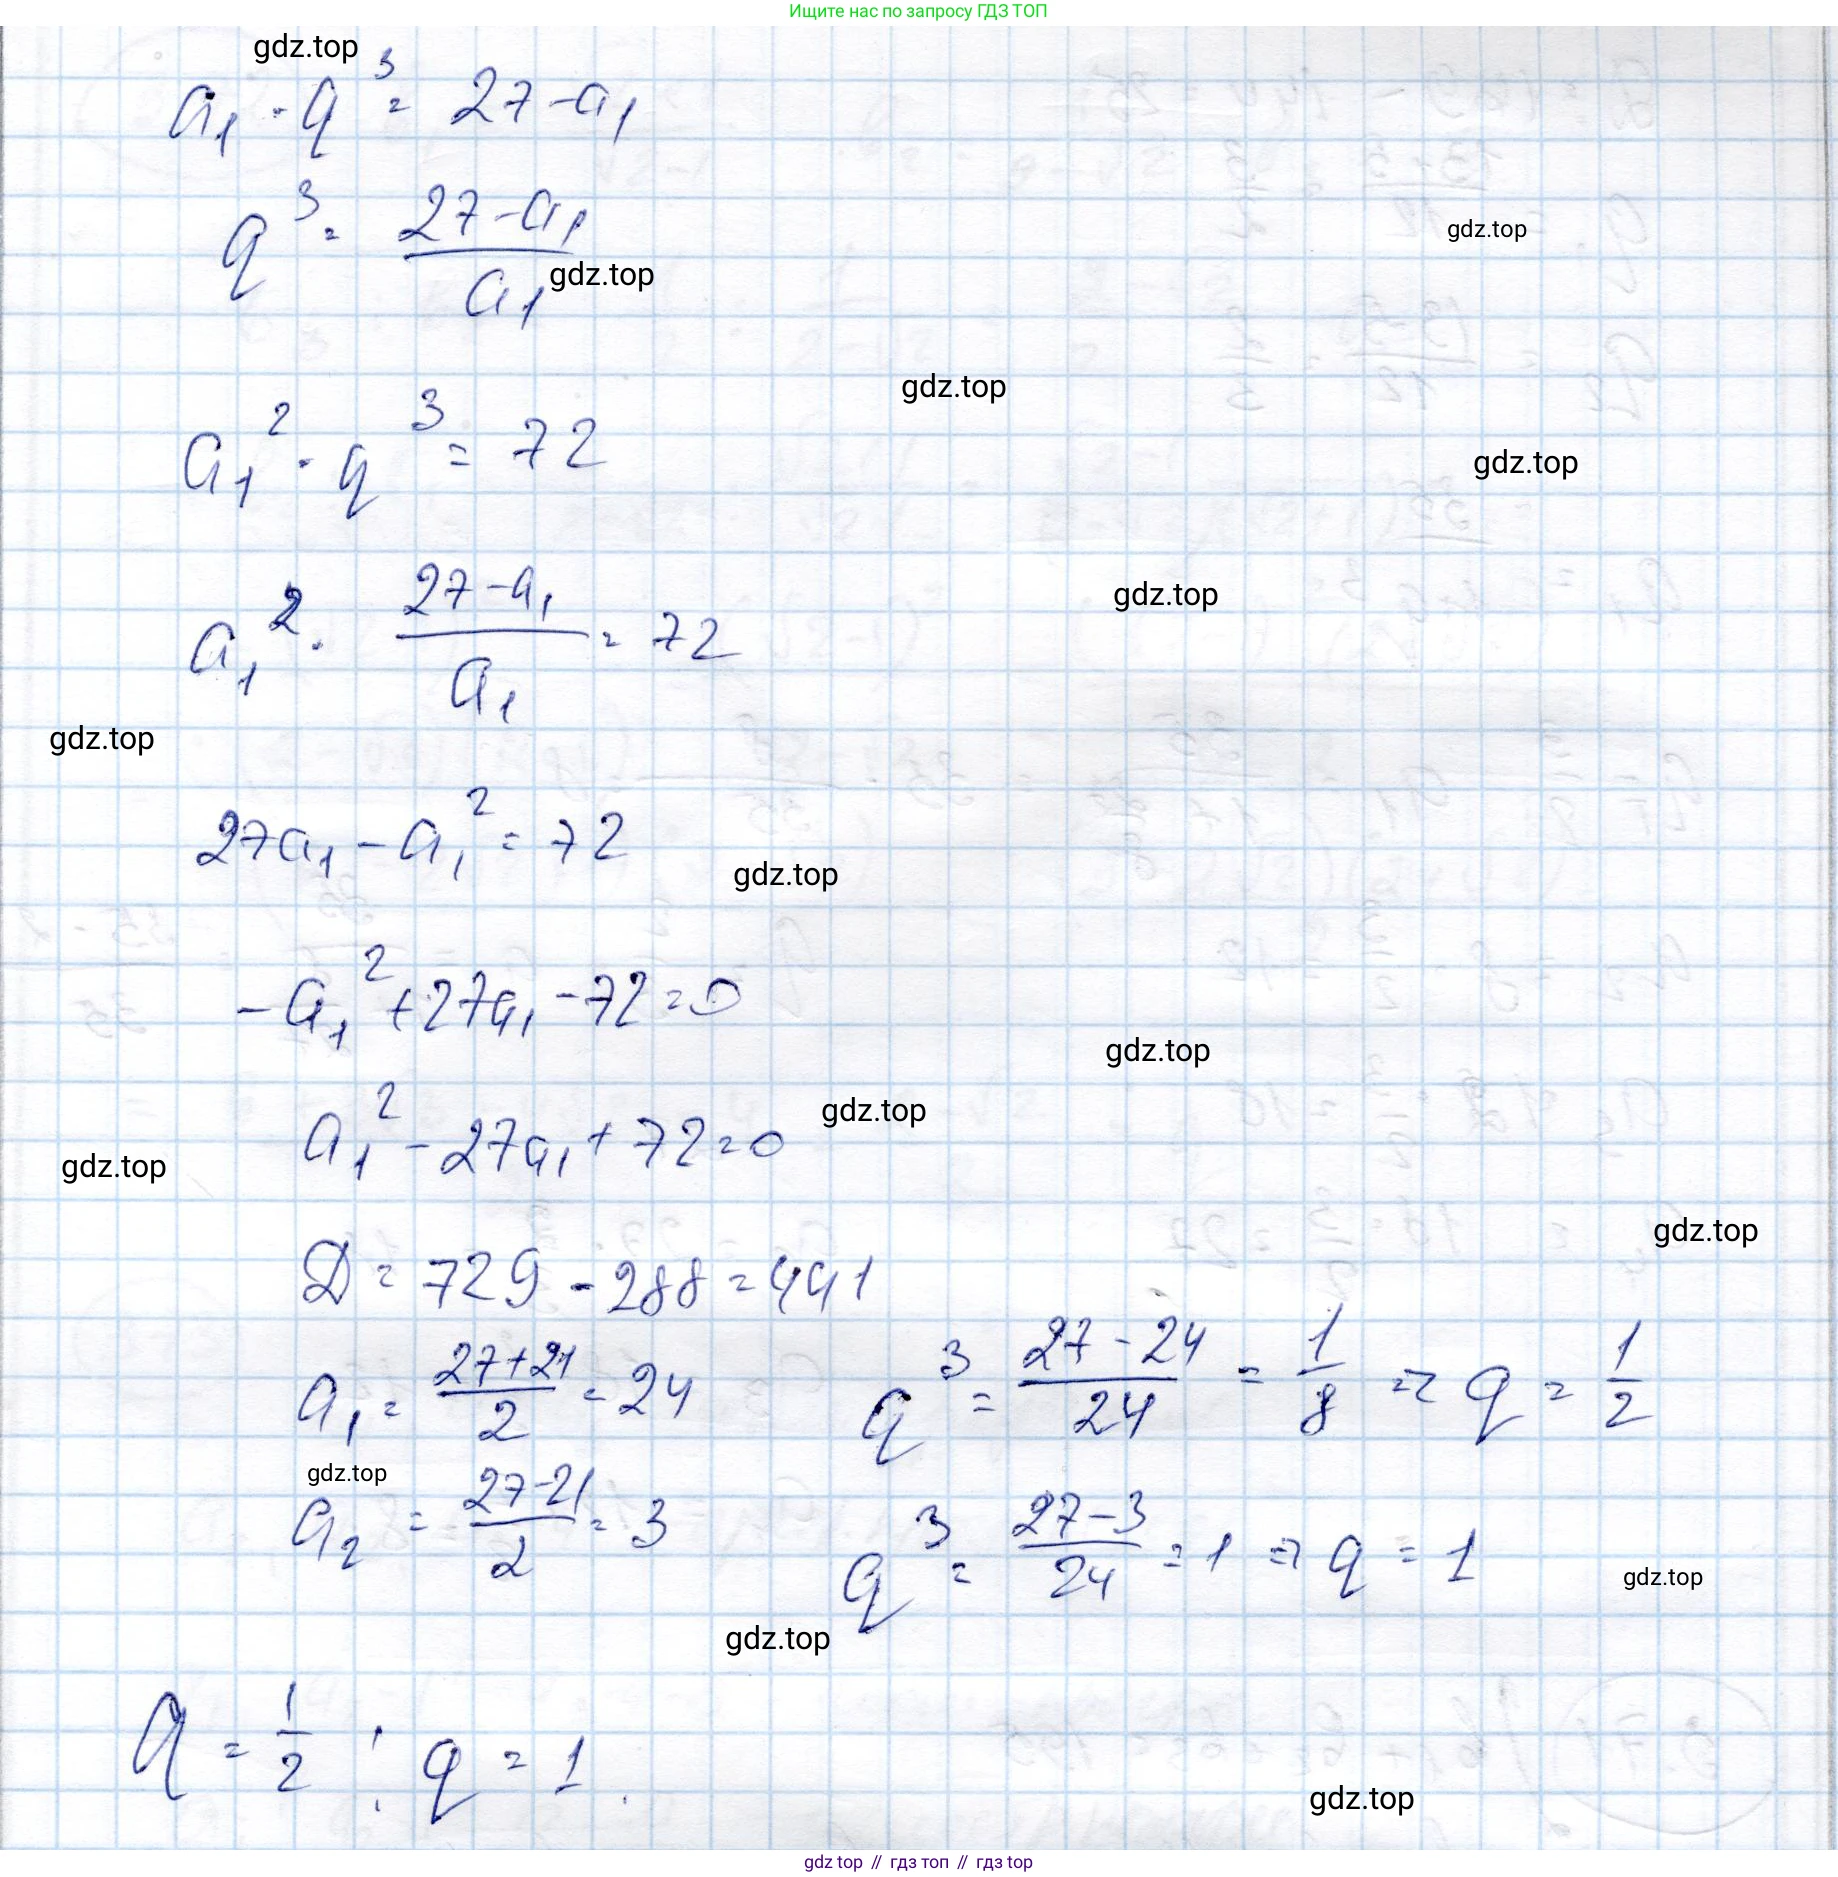 Ищите нас по запросу ГДЗ ТОП
gdz.top
a₁ · q³ = 27 - a₁
q³ = (27 - a₁)/a₁
gdz.top
gdz.top
gdz.top
a₁² · q³ = 72
gdz.top
a₁² · (27 - a₁)/a₁ = 72
gdz.top
gdz.top
27a₁ - a₁² = 72
gdz.top
-a₁² + 27a₁ - 72 = 0
gdz.top
a₁² - 27a₁ + 72 = 0
gdz.top
gdz.top
gdz.top
D = 729 - 288 = 441
a₁ = (27+21)/2 = 24 q³ = (27 - 24)/24 = 1/8 => q = 1/2
gdz.top
a₂ = (27-21)/2 = 3 q³ = (27-3)/24 = 1 => q = 1
gdz.top
gdz.top
q = 1/2 ; q = 1.
gdz.top
gdz top // гдз топ // гдз top